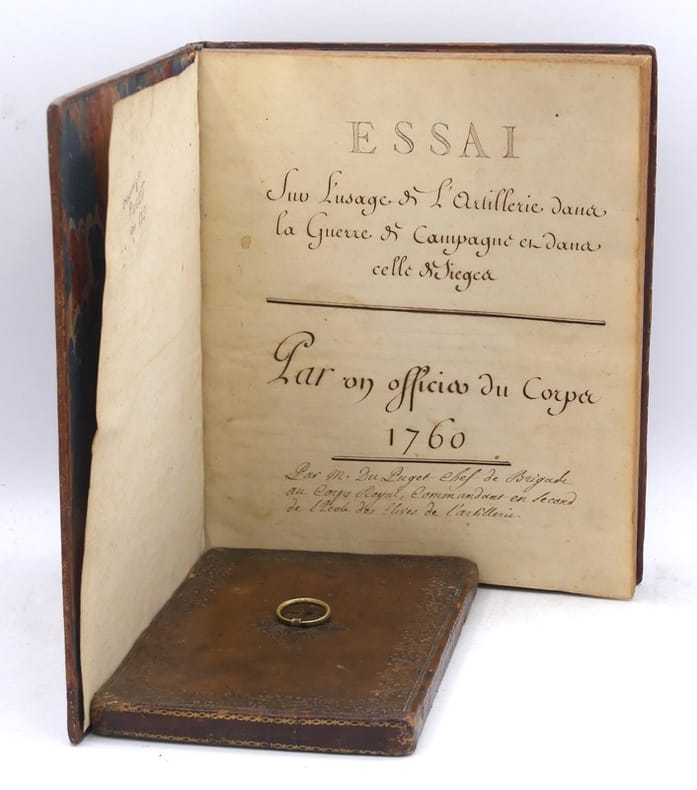 ESSAI
Sur l'usage de L'Artillerie dans
la Guerre de Campagne et dans
celle de Sieges
Par un officier du Corps
1760
Par M. Du Puget Chef de Brigade
au Corps Royal, Commandant en Second
de l'Ecole des Elèves de l'artillerie.